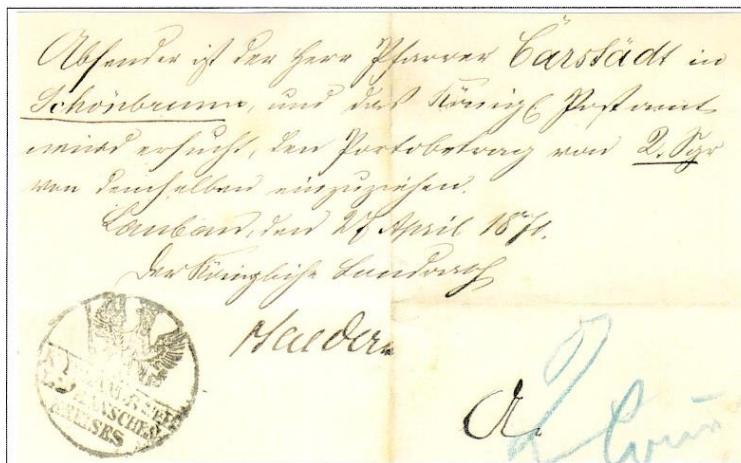 Absender ist der Herr Pfarrer Carstädt in
Schönbrunn, und das Königl Postamt
wird ersucht, den Portobetrag von 2. Sgr
von demselben einzuziehen.
Lauban, den 27 April 1871.
Der Königliche Landrath
LAUBANSCHEN
KREISES